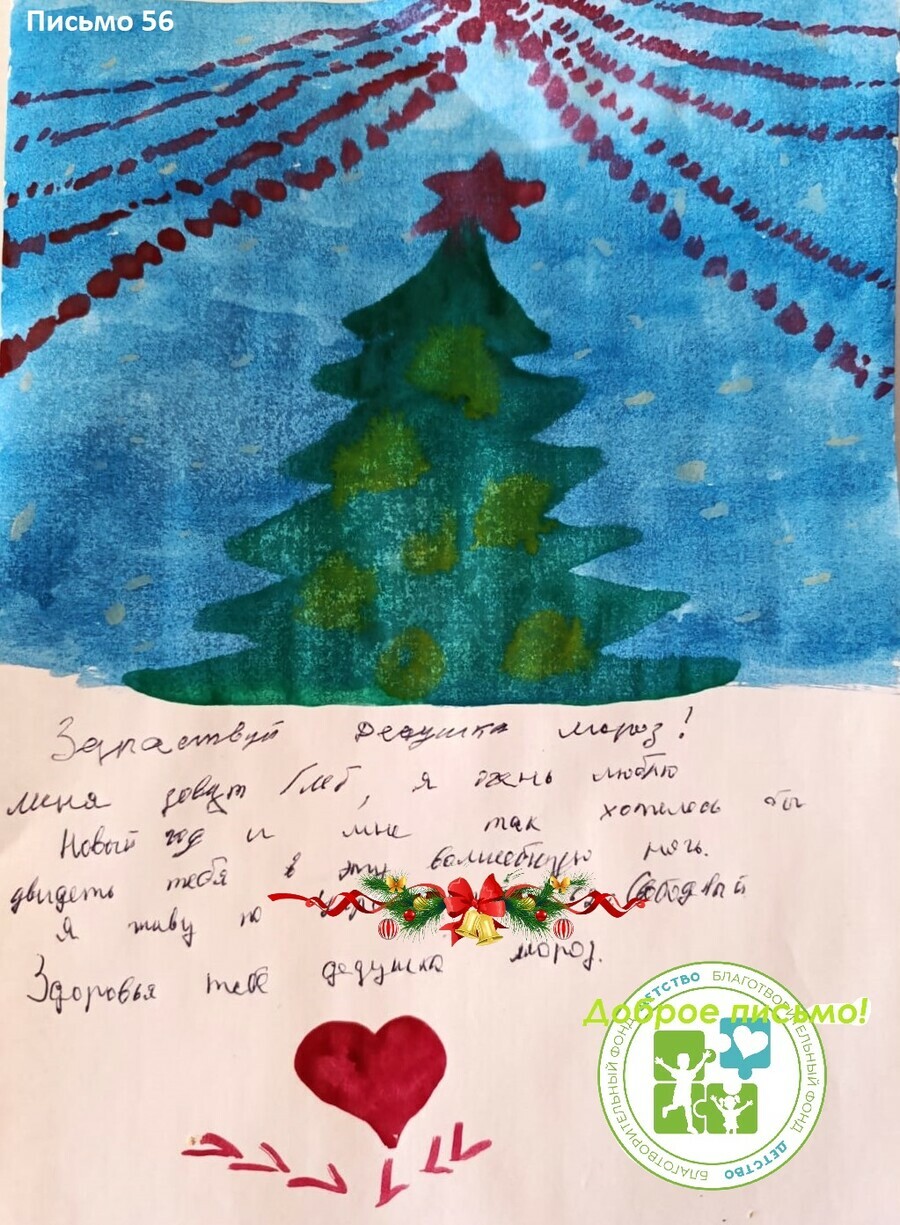 Письмо 56
Здраствуй дедушка мороз!
меня зовут Глеб, я очень люблю
Новый год и мне так хотелось бы
двидеть тебя в эту волшебную ночь.
Я живу по
Здоровья тебе дедушка мороз.
Доброе письмо!
БЛАГОТВОРИТЕЛЬНЫЙ ФОНД ДЕТСТВО БЛАГОТВОРИТЕЛЬНЫЙ ФОНД ДЕТСТВО